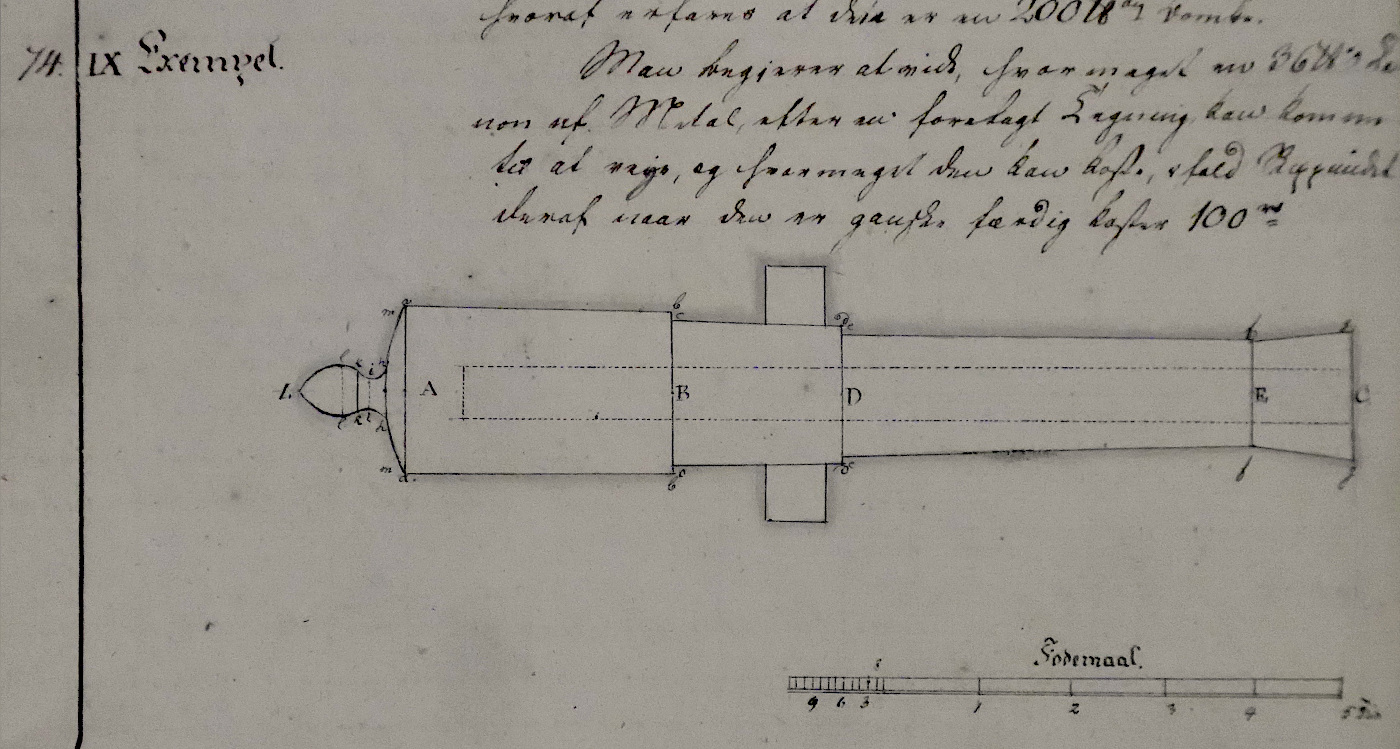 hvoraf erfares at det er en 200 ℔ Bombe.
74. IX Exempel.
Man begierer at vide, hvormeget en 36 ℔
non af Metal, efter en foretagt Tegning kan komme
til at veye, og hvormeget den kan koste, ifald Skippundet
deraf naar den er ganske færdig koster 100
m a b c d f g
l. k i h A B D E C
m a b c d f g
Fodemaal.
9 6 3 1 2 3 4 5